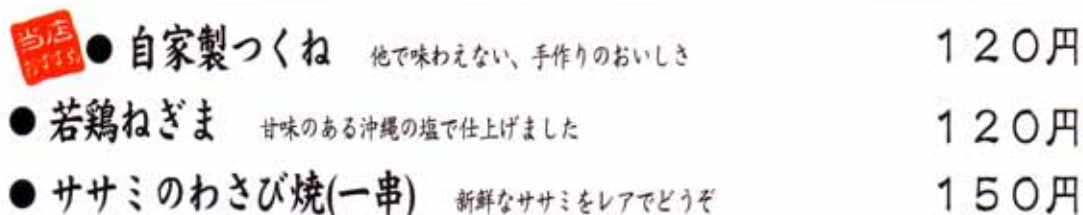 当店おすすめ
● 自家製つくね 他で味わえない、手作りのおいしさ 120円
● 若鶏ねぎま 甘味のある沖縄の塩で仕上げました 120円
● ササミのわさび焼(一串) 新鮮なササミをレアでどうぞ 150円